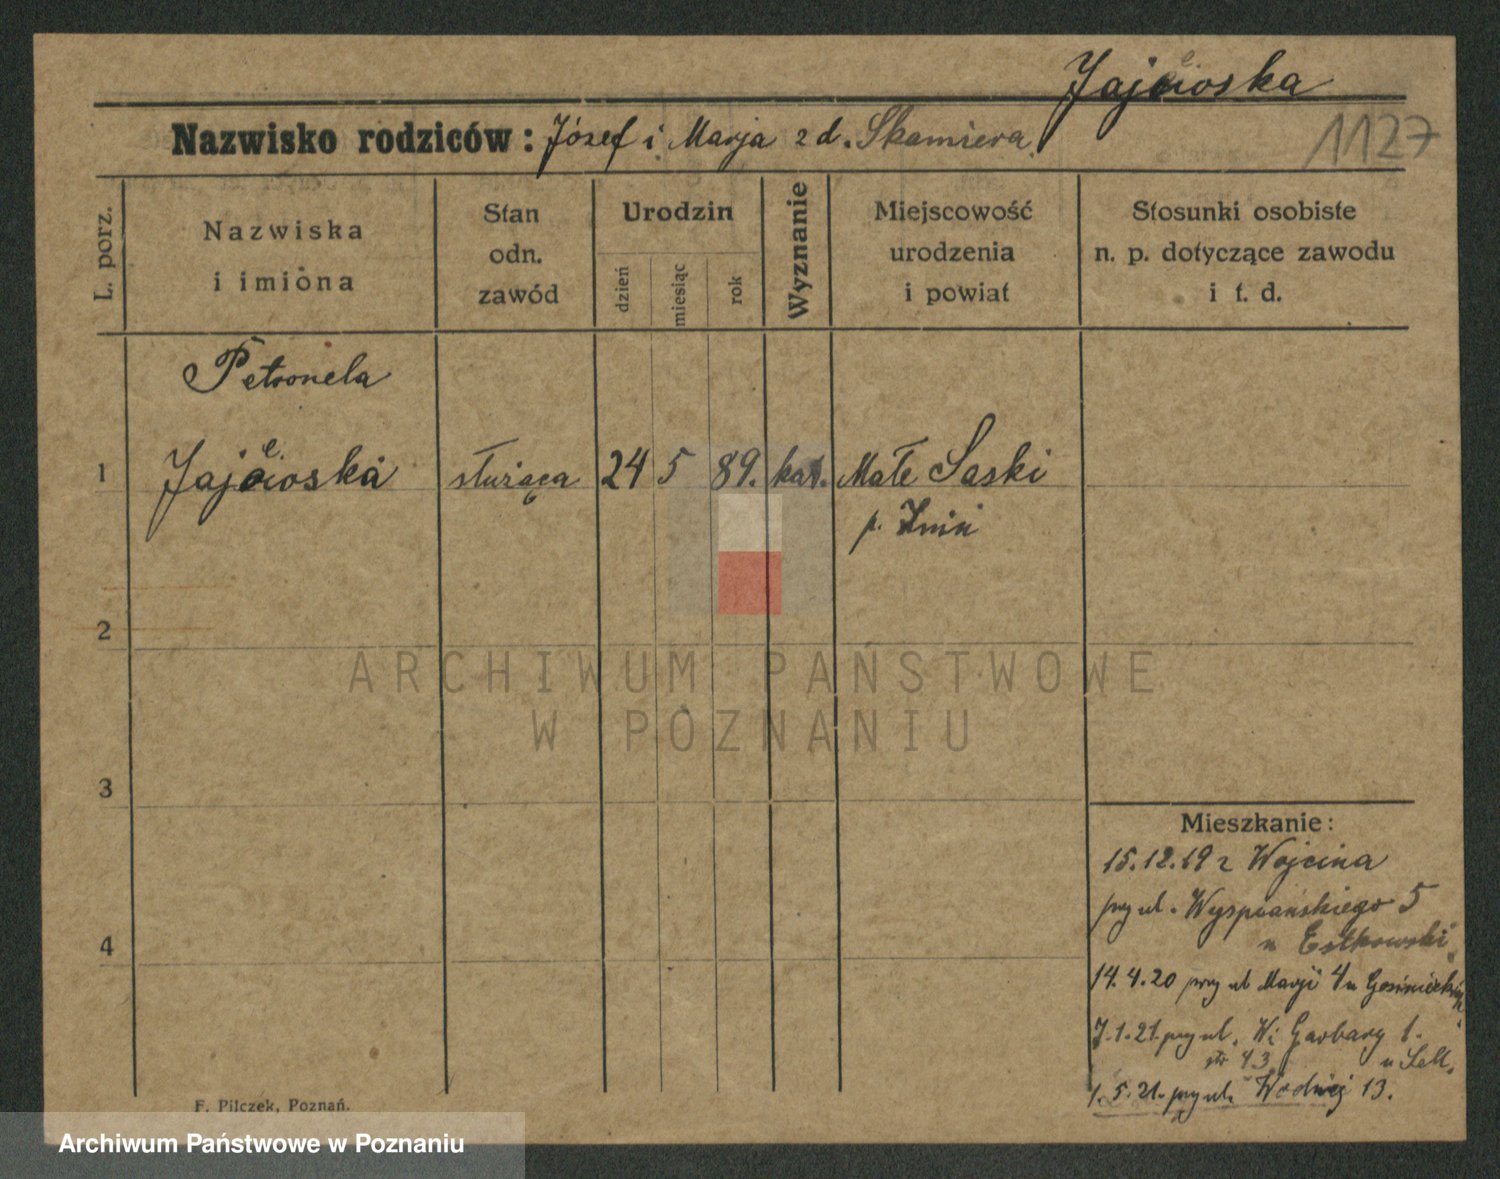 Jajcioska
Nazwisko rodziców: Józef i Marja z d. Skamiera
1127
L. porz.
Nazwiska
i imiona
Stan
odn.
zawód
Urodzin
dzień
miesiąc
rok
Wyznanie
Miejscowość
urodzenia
i powiat
Stosunki osobiste
n. p. dotyczące zawodu
i t. d.
Petronela
1 służąca 24 5 89. kat. Małe Saski
p. Żnin
2
ARCHIWUM PAŃSTWOWE
W POZNANIU
3
Mieszkanie:
15.12.19 z Wojcina
przy ul. Wyspiańskiego 5
u Estkowski
4
14.4.20 przy ul Marji 4 u
7.1.21. przy ul. W. Garbary 1.
str 43 u Sell.
1.5.21. przy ul. Wodnej 13.
F. Pilczek, Poznań.
Archiwum Państwowe w Poznaniu